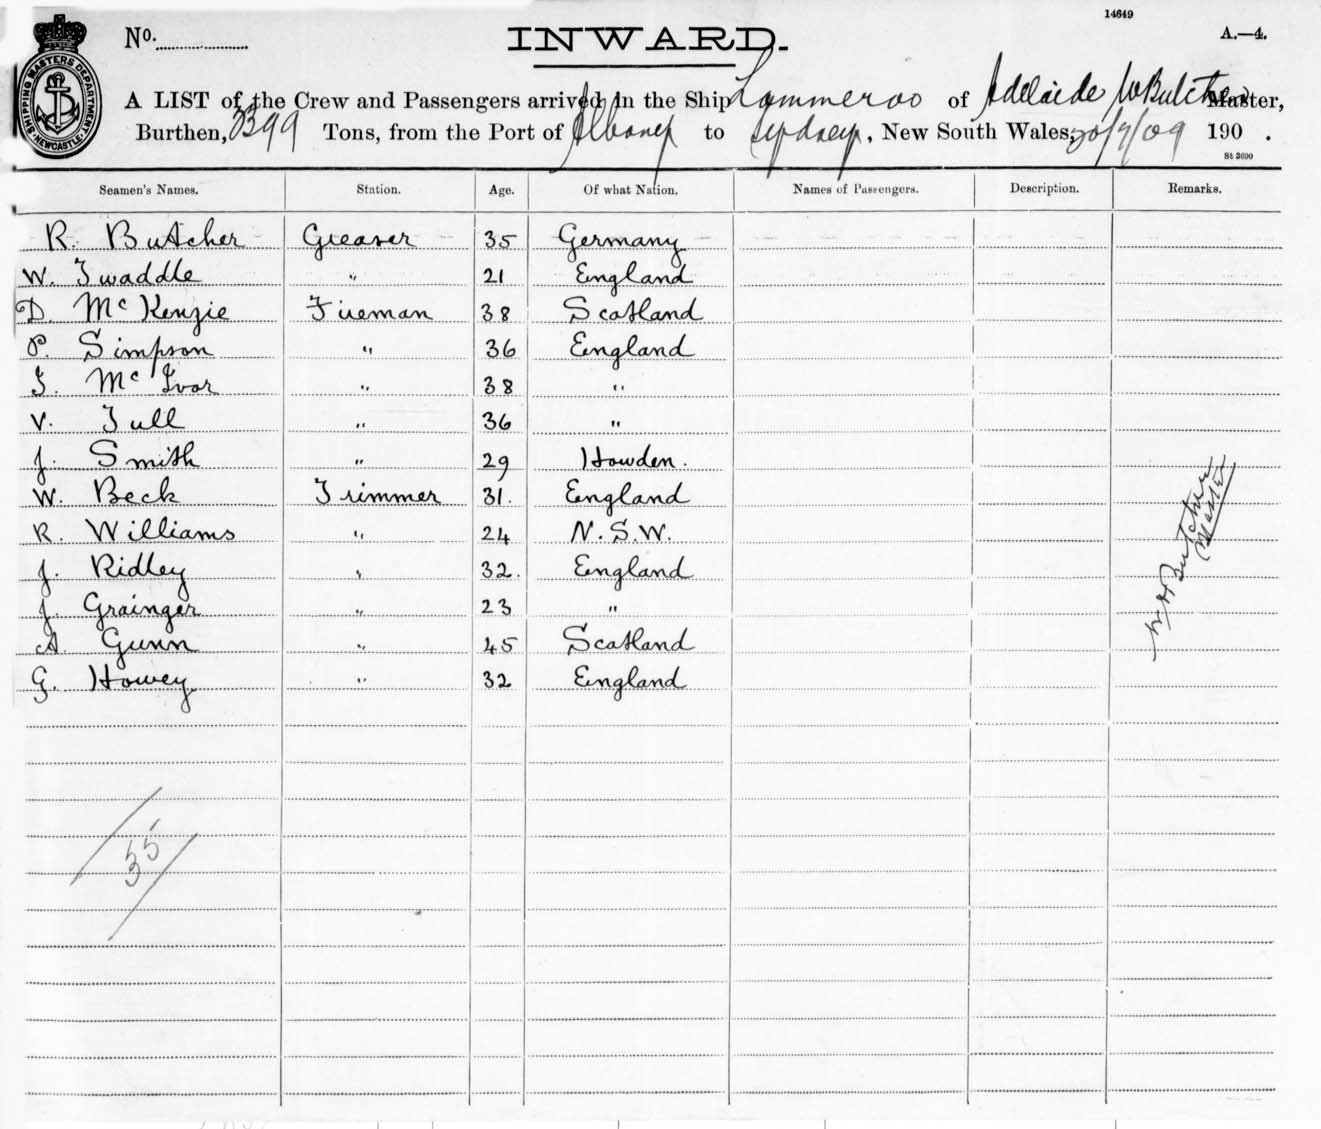 14649
No. INWARD. A.—4.
A LIST of the Crew and Passengers arrived in the Ship of Adelaide W Butcher Master,
Burthen, 3399 Tons, from the Port of Albany to Sydney, New South Wales, 20/7/09 190 .
St 3600
SHIPPING MASTERS DEPARTMENT NEWCASTLE
Seamen's Names. Station. Age. Of what Nation. Names of Passengers. Description. Remarks.
R. Butcher Greaser 35 Germany
W. Twaddle " 21 England
D. McKenzie Fireman 38 Scotland
P. Simpson " 36 England
T. McIvor " 38 "
V. Tull " 36 "
J. Smith " 29 Howden.
W. Beck Trimmer 31. England
R. Williams " 24 N.S.W.
J. Ridley " 32. England
J. Grainger " 23 "
A. Gunn " 45 Scotland
G. Howey " 32 England
W H Butcher
Master
35